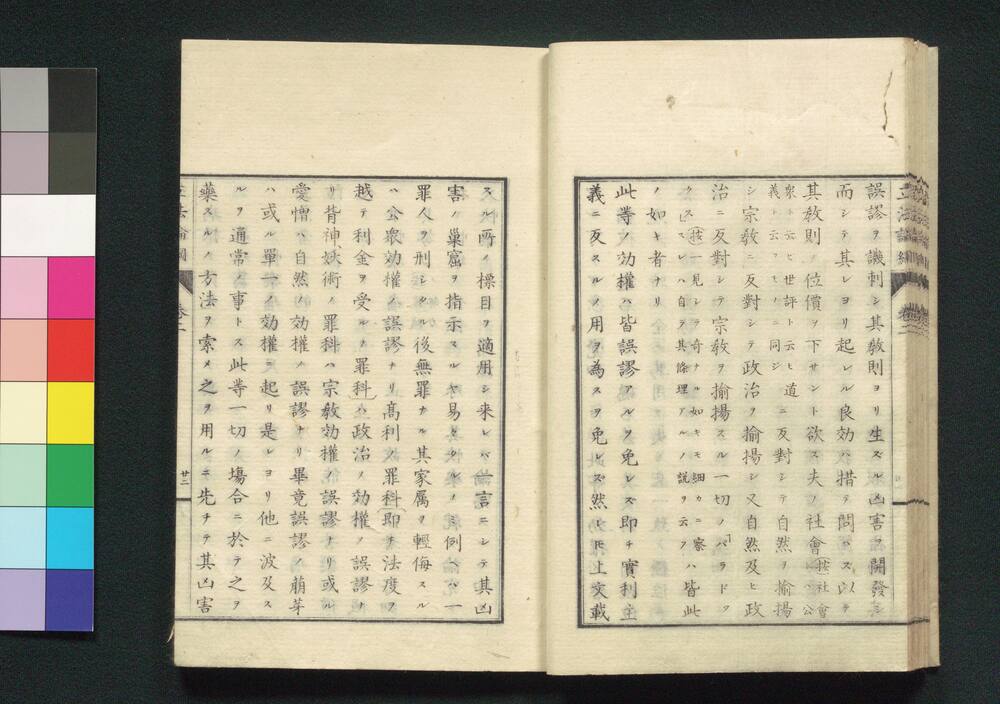 誤謬ヲ譏刺シ其敎則ヨリ生ズル凶害ヲ開發シ
而シテ其レヨリ起レル良効ハ措テ問ハズ以テ
其敎則ノ位價ヲ下サント欲ス夫ノ社會按社會ハ公
衆ト云ヒ世評ト云ヒ道
義ト云フモノニ同ジニ反對シテ自然ヲ揄揚
シ宗敎ニ反對シテ政治ヲ揄揚シ又自然及ヒ政
治ニ反對シテ宗敎ヲ揄揚スル一切ノ「パラドツ
クス按一見シテ奇ナル如キモ細カニ察
スレハ自ラ其條理アルノ說ヲ云フハ皆此
ノ如キ者ナリ
此等ノ効權ハ皆誤謬アルヲ免レズ即チ實利主
義ニ反スルノ用ヲ為スヲ免レズ然レ𪜈上文載
スル所ノ標目ヲ適用シ来レバ論言ニシテ其凶
害ノ巢窟ヲ指示スルヤ易々タルノミ例ヘバ一
罪人ヲ刑シタル後無罪ナル其家属ヲ輕侮スル
ハ公衆効權ノ誤謬ナリ髙利ノ罪科即チ法度ヲ
越テ利金ヲ受ルノ罪科ハ政治ノ効權ノ誤謬ナ
リ背神、妖術ノ罪科ハ宗敎効權ノ誤謬ナリ或ル
愛憎ハ自然ノ効權ノ誤謬ナリ畢竟誤謬ノ萠芽
ハ或ル單一ノ効權ニ起リ是レヨリ他ニ波及ス
ルヲ通常ノ事トス此等一切ノ塲合ニ於テ之ヲ
藥スルノ方法ヲ索メ之ヲ用ルニ先チテ其凶害
廿二